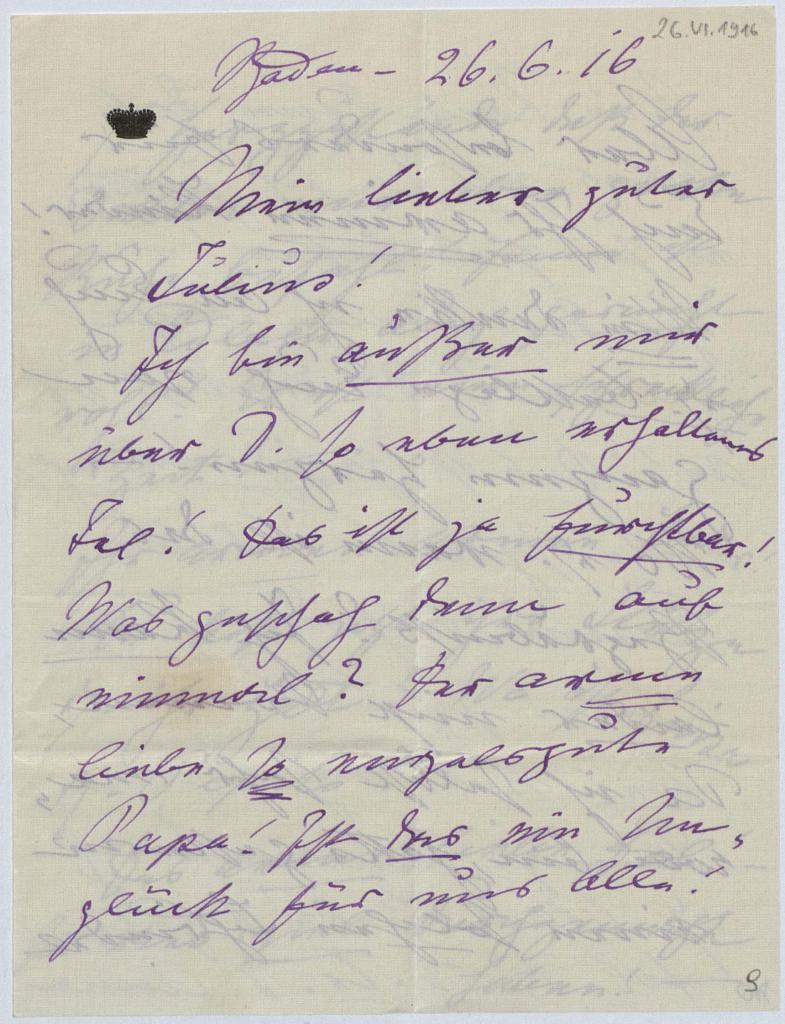 26.VI.1916
Baden – 26. 6. 16
Mein lieber guter
Julius!
Ich bin außer mir
über D. so eben erhaltenes
Tel! Das ist ja furchtbar!
Was geschah denn auf
einmal? Der arme
liebe so engelsgute
Papa! Ist das ein Un„
glück für uns Alle!
9